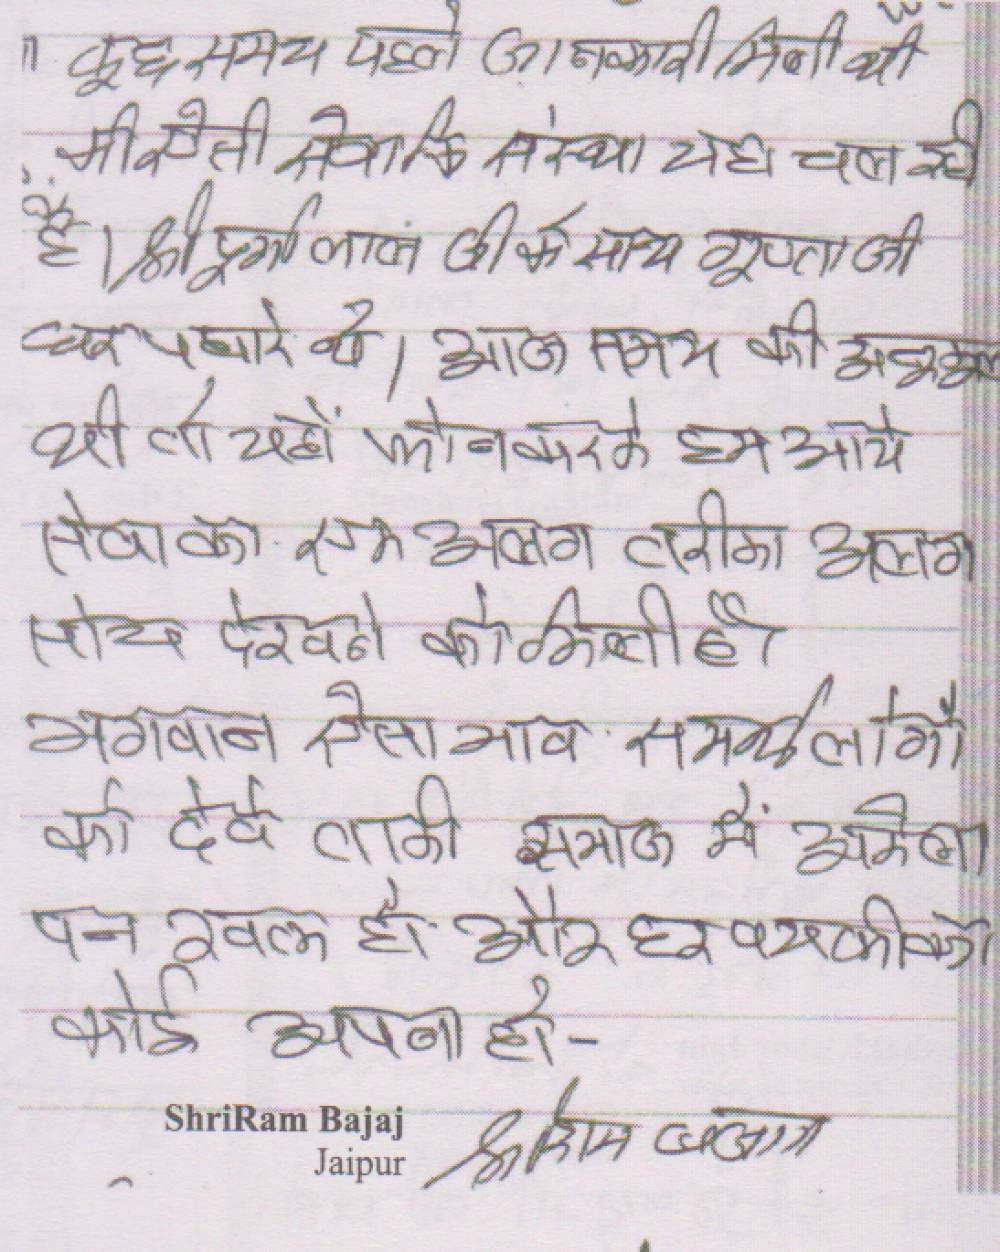 ॥ कुछ समय पहले जानकारी मिली थी
की ऐसी सेवा कि संस्था यहा चल रही
है। श्री दुर्गा लाल जी के साथ गुप्ता जी
घर पधारे थे। आज समय की
थी तो यहाँ फोन करके हम आये
सेवा का एक अलग तरीका अलग
सोच देखने को मिली है
भगवान ऐसा भाव समर्थ लोगों
को देवे ताकी समाज में अकेला
पन खत्म हो और हर व्यक्ती को
कोई अपना हो -
ShriRam Bajaj श्रीराम बजाज
Jaipur